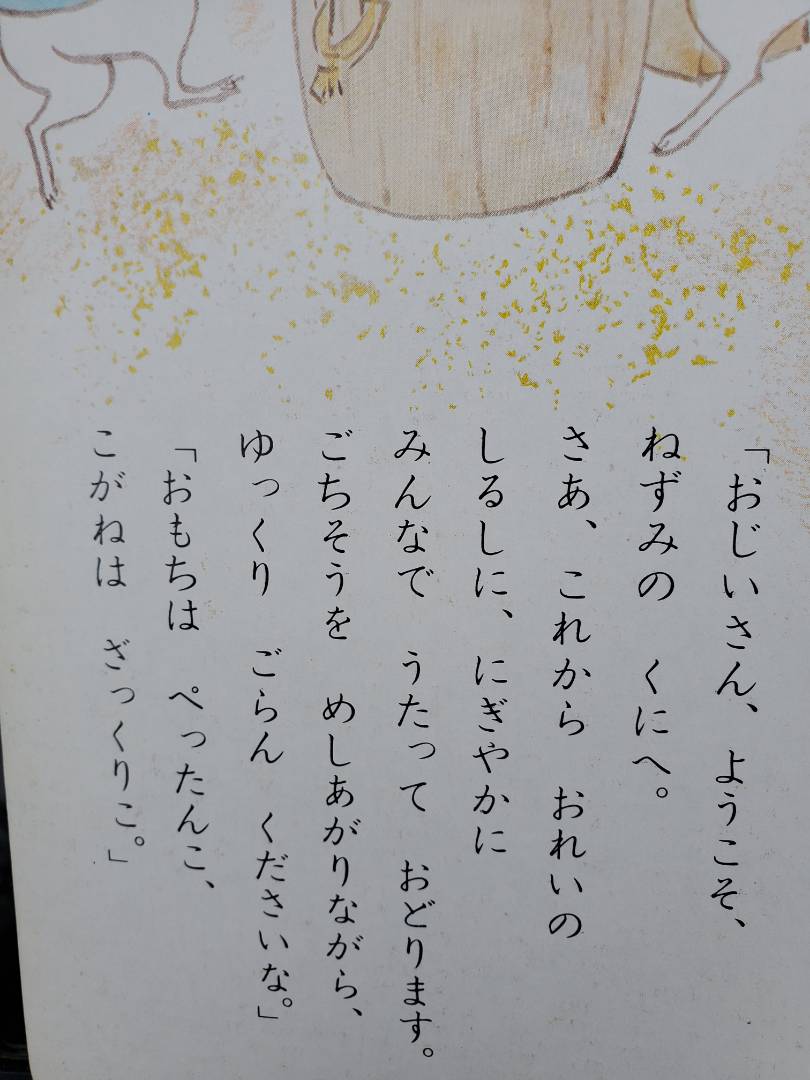 「おじいさん、 ようこそ、
ねずみの くにへ。
さあ、 これから おれいの
しるしに、 にぎやかに
みんなで うたって おどります。
ごちそうを めしあがりながら、
ゆっくり ごらん くださいな。」
「おもちは ぺったんこ、
こがねは ざっくりこ。」